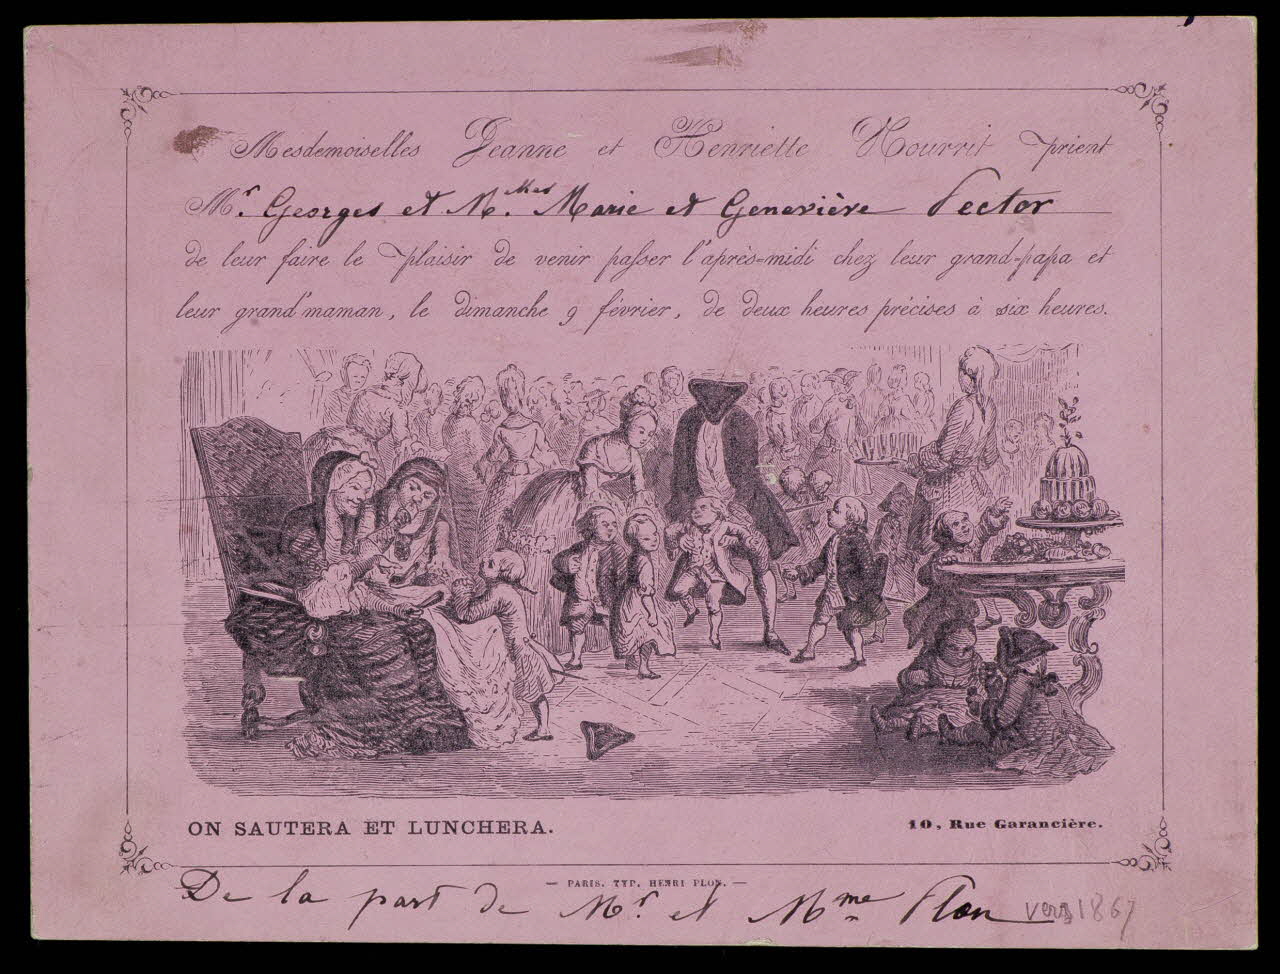 Mesdemoiselles Jeanne et Henriette Nourrit prient
Mr. Georges et M.elles Marie et Geneviève Pector
de leur faire le plaisir de venir passer l'après-midi chez leur grand-papa et
leur grand'maman, le dimanche 9 février, de deux heures précises à six heures.
ON SAUTERA ET LUNCHERA.
10, Rue Garancière.
— PARIS. TYP. HENRI PLON. —
De la part de Mr. et Mme Plon
vers 1867